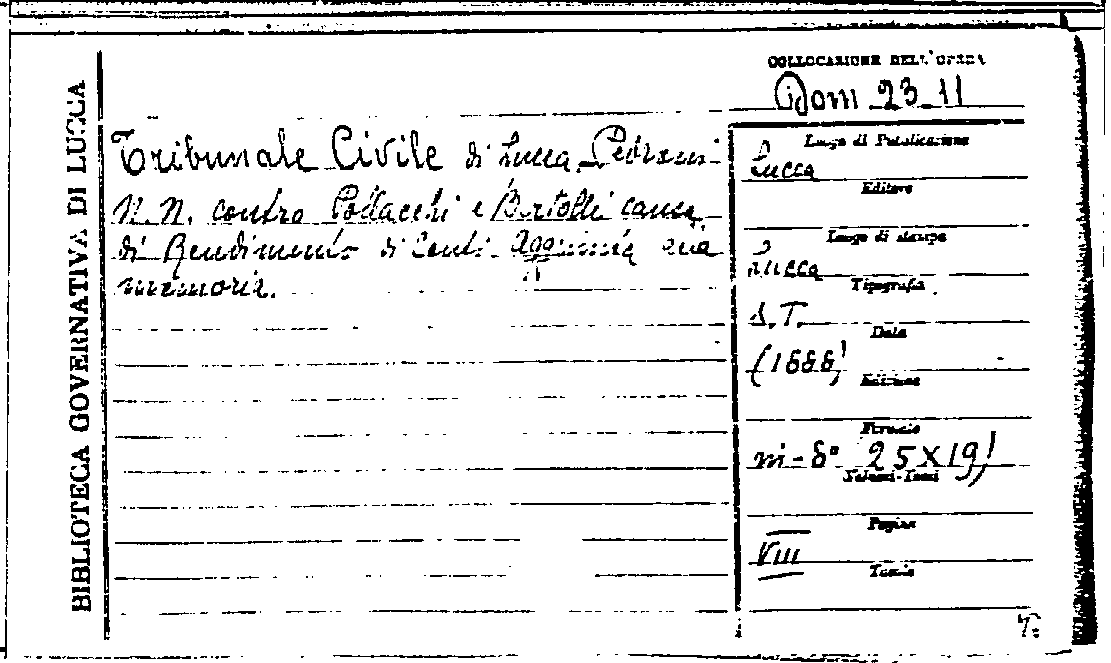 BIBLIOTECA GOVERNATIVA DI LUCCA
COLLOCAZIONE DELL'OPERA
Dom 23-11
Tribunale Civile di Lucca
N. N. contro Pollacchi e Bertolli causa
di Rendimento di Conti. Aggiunta alla
memoria.
Luogo di Pubblicazione
Lucca
Editore
Luogo di stampa
Lucca
Tipografia
s. T.
Data
(1888)
Edizione
Formato
in-8° 25X19
Volumi-Tomi
Pagine
VIII
Tavole